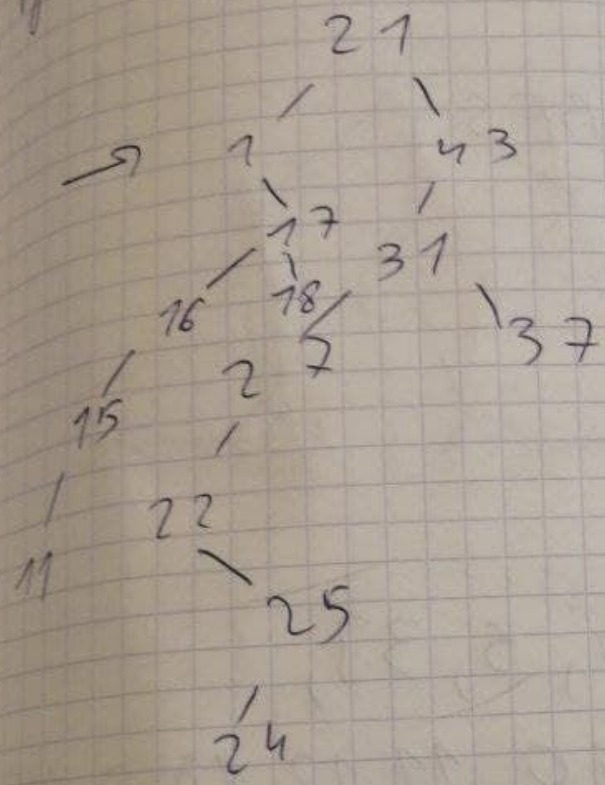 21
1 43
17 31
16 18
27 37
15
22
11
25
24